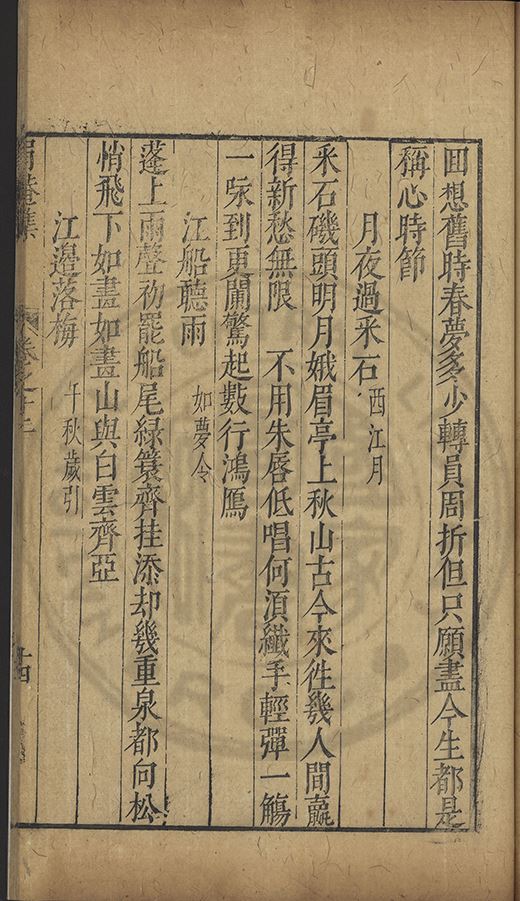 囬想舊時春夢多少轉員周折但只願盡今生都是
稱心時節
月夜過采石 西江月
采石磯頭明月娥眉亭上秋山古今來徃幾人間羸
得新愁無限 不用朱唇低唱何湏纖手輕彈一觴
一咏到更闌驚起數行鴻鴈
江船聽雨 如夢令
蓬上雨聲初罷船尾緑簑齊挂添却幾重泉都向松
悄飛下如畫如畫山與白雲齊亞
江邉落梅 千秋歲引
卷之十三
十四